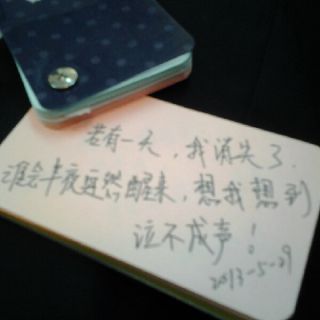 若有一天，我消失了.
谁会半夜突然醒来，想我想到
泣不成声！
2013-5-29